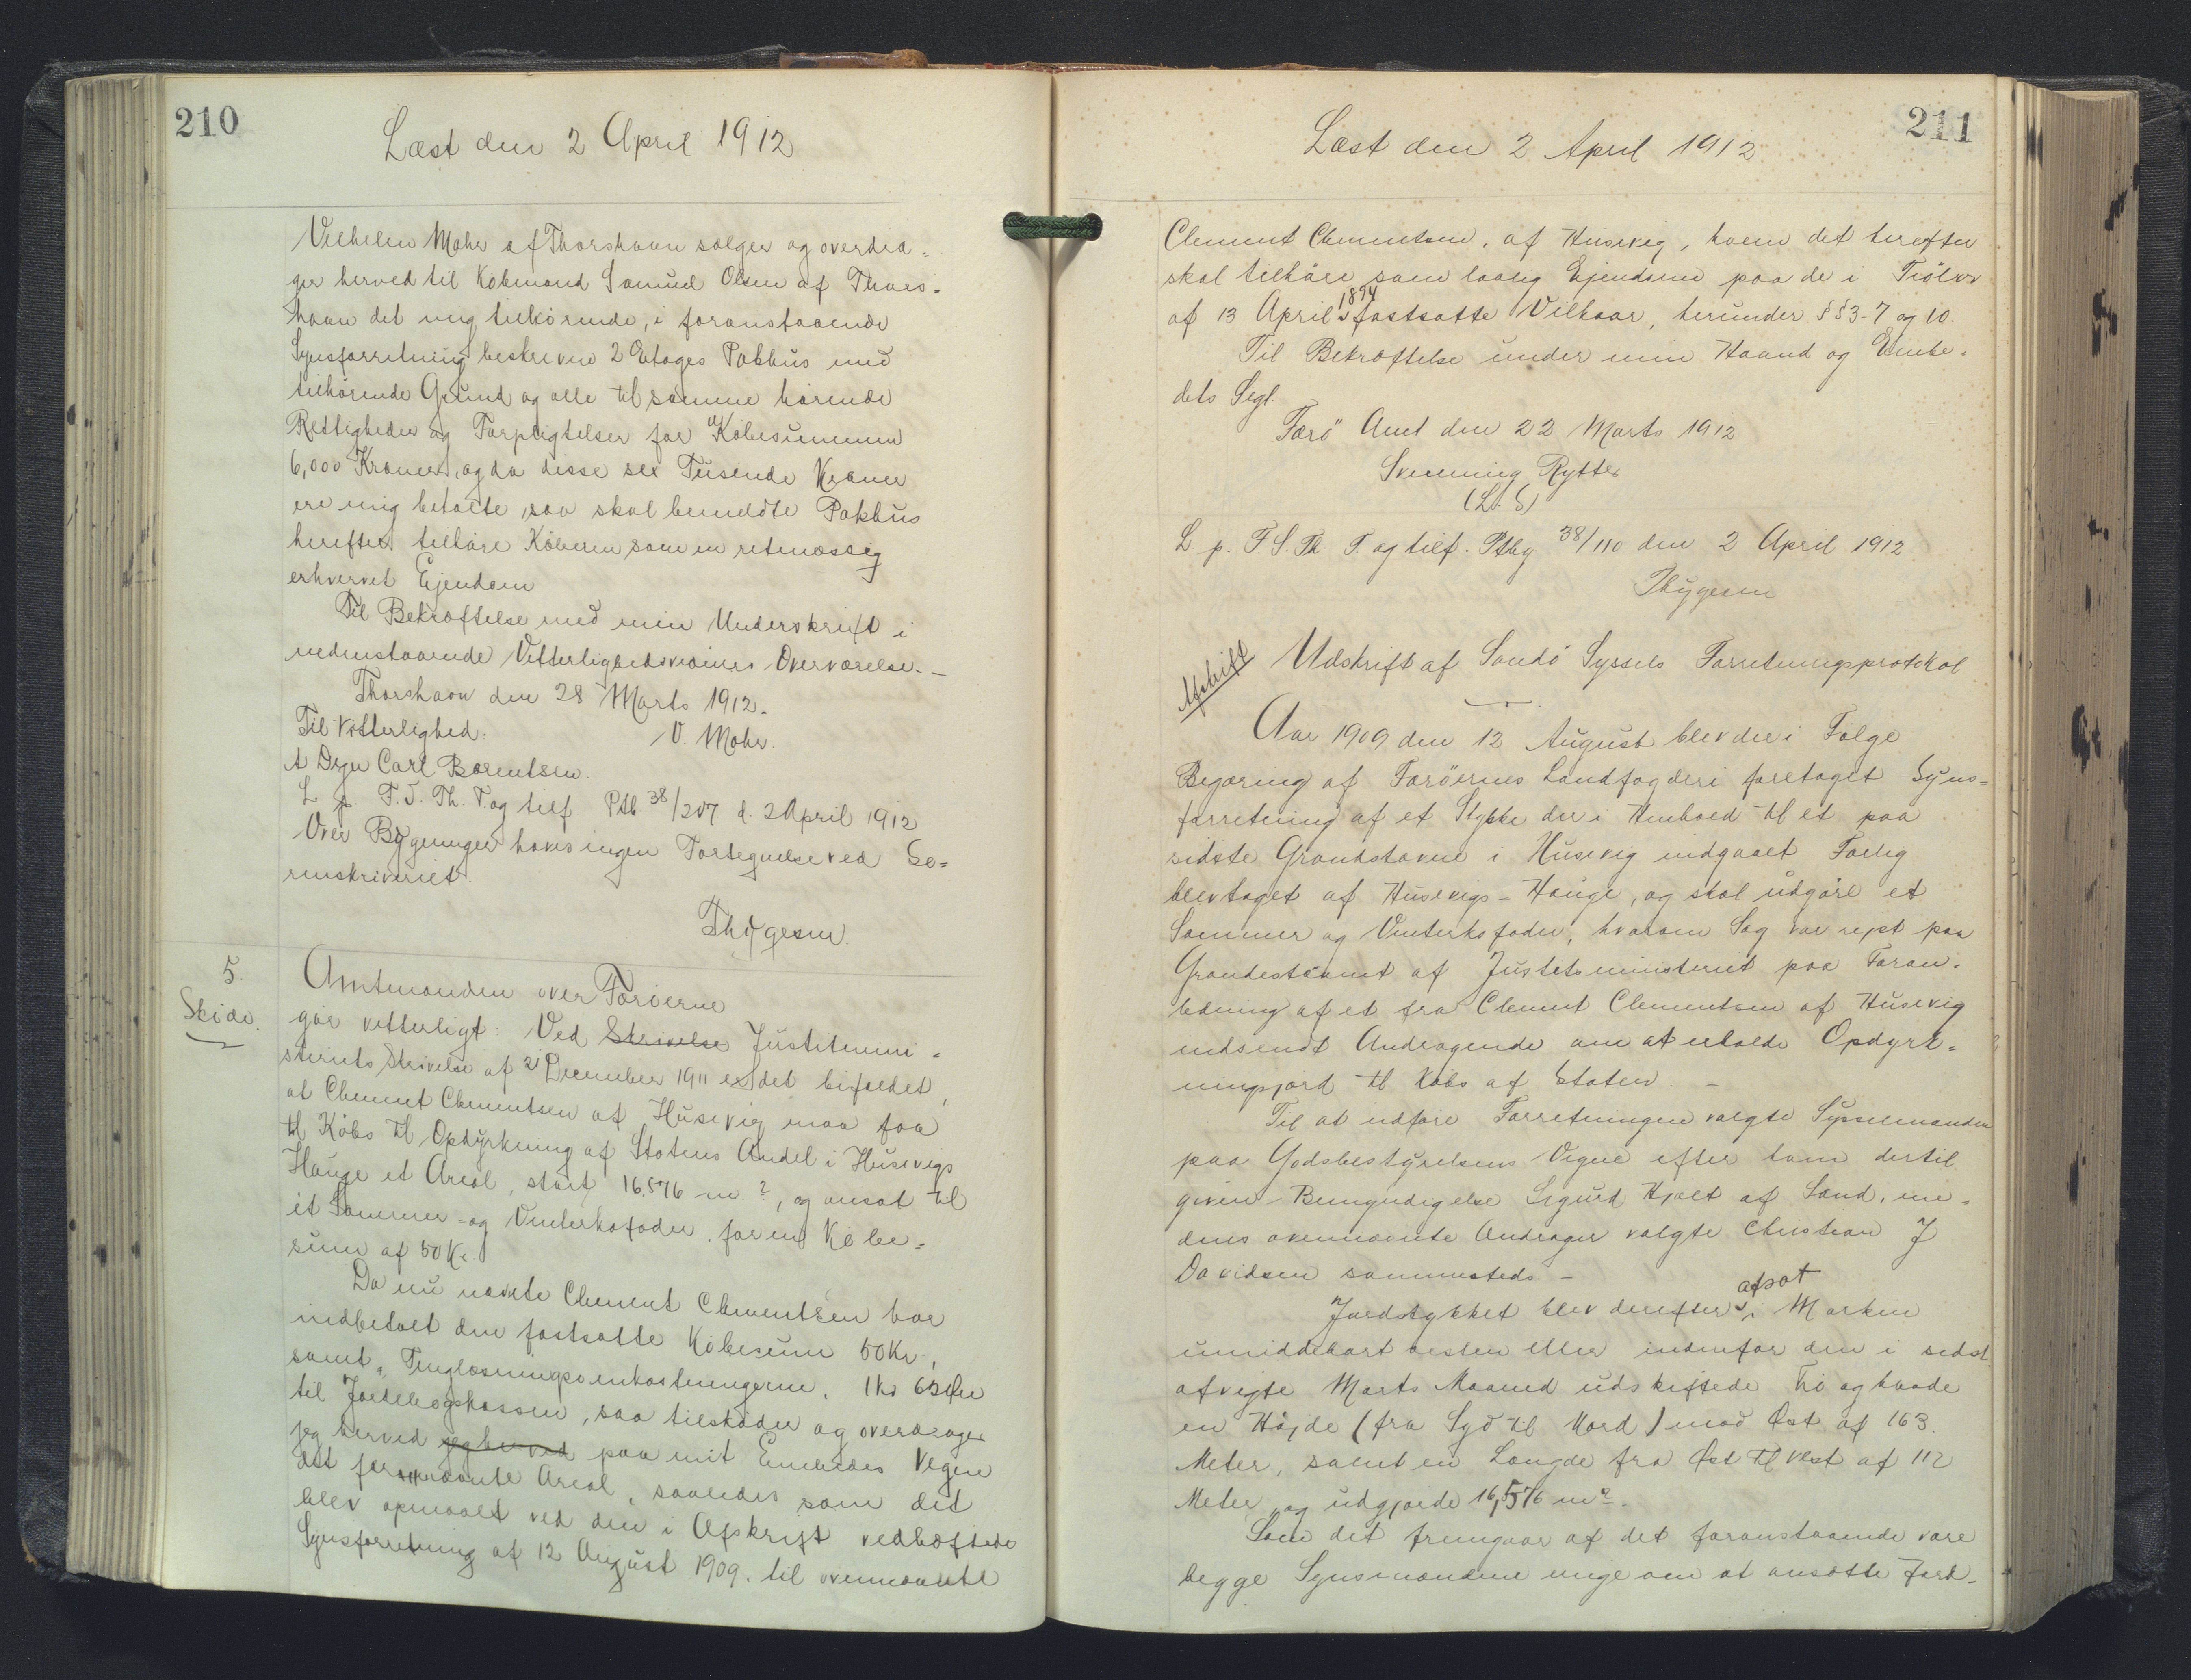 210
Læst den 2 April 1912
Vilhelm Mohr af Thorshavn sælger og overdra-
ger herved til Købmand Samuel Olsen af Thors-
havn det mig tilhörende, i foranstaaende
Synsforretning beskrevne 2 Etages Pakhus med
tilhörende Grund og alle til samme hörende
Rettigheder og Forpligtelser for Købesummen
6,000 Kroner, og da disse sex Tusende Kroner
ere mig betalte, saa skal bemeldte Pakhus
herefter tilhøre Køberen som en retmæssig
erhvervet Ejendom
Til Bekræftelse med min Underskrift i
nedenstaaende Vitterlighedsvidners Overværelse.-
Thorshavn den 28 Marts 1912.
Til Vitterlighed: V. Mohr.
A Degn Carl Børentsen.
L p. F. S. Th. T. og tilf. Ptb. 38/207 d. 2 April 1912
Over Bygninger haves ingen Fortegnelse ved So-
renskriveriet.
Thygesen.
5.
Skøde.
Amtmanden over Færöerne
gör vitterligt: Ved Skrivelse Justitsmini-
steriets Skrivelse af 21 December 1911 er det bifaldet,
at Clement Clementsen af Husevig maa faa
til Købs til Opdyrkning af Statens Andel i Husevigs
Hauge et Areal, stort 16,576 m², og ansat til
et Sommer- og Vinterkofoder, for en Købe-
sum af 50 Kr.
Da nu nævnte Clement Clementsen har
indbetalt den fastsatte Købesum 50 Kr.,
samt Tinglæsningsomkostningerne, 1 Kr 63 Øre
til Jordebogskassen, saa tilskøder og overdrager
jeg herved jeg herved paa mit Embedes Vegne
det fornævnte Areal, saaledes som det
blev opmaalt ved den i Afskrift vedhæftede
Synsforretning af 12 August 1909. til ovennævnte
211
Læst den 2 April 1912
Clement Clementsen, af Husevig, hvem det herefter
skal tilhøre som lovlig Ejendom paa de i Tidlov
af 13 April 1894 fastsatte Vilkaar, herunder §§3-7 og 10.
Til Bekræftelse under min Haand og Embe-
dets Segl.
Færö Amt den 22 Marts 1912
Svenning Rytter
(L. S)
L. p. F. S. Th. T. og tilf. Ptbg 38/110 den 2 April 1912
Thygesen
Afskrift
Udskrift af Sandö Syssels Forretningsprotokol
Aar 1909 den 12 August blev der i Følge
Begæring af Færöernes Landfogderi foretaget Syns-
forretning af et Stykke der i Henhold til et paa
sidste Grandstævne i Husevig indgaaet Forlig
blev taget af Husevigs-Hauge, og skal udgöre et
Sommer og Vinterkofoder, hvorom Sag var rejst paa
Grandestævnet af Justitsministeriet paa Foran-
ledning af et fra Clement Clementsen af Husevig
indsendt Andragende om at erholde Opdyrk-
ningsjord til Købs af Staten. -
Til at udføre Forretningen valgte Sysselmanden
paa Godsbestyrelsens Vegne efter ham dertil
given Bemyndigelse Sigurd Hjalt af Sand, me-
dens ovennævnte Andrager valgte Christian J
Davidsen sammesteds. -
Jordstykket blev derefter afsat i Marken
umiddelbart vesten eller indenfor den i sidst
afvigte Marts Maaned udskiftede Trö og havde
en Højde (fra Syd til Nord) mod Øst af 163.
Meter, samt en Længde fra Øst til Vest af 112
Meter og udgjorde 16,576 m².
Som det fremgaar af det foranstaaende vare
begge Synsmændene enige om at ansætte Jord-